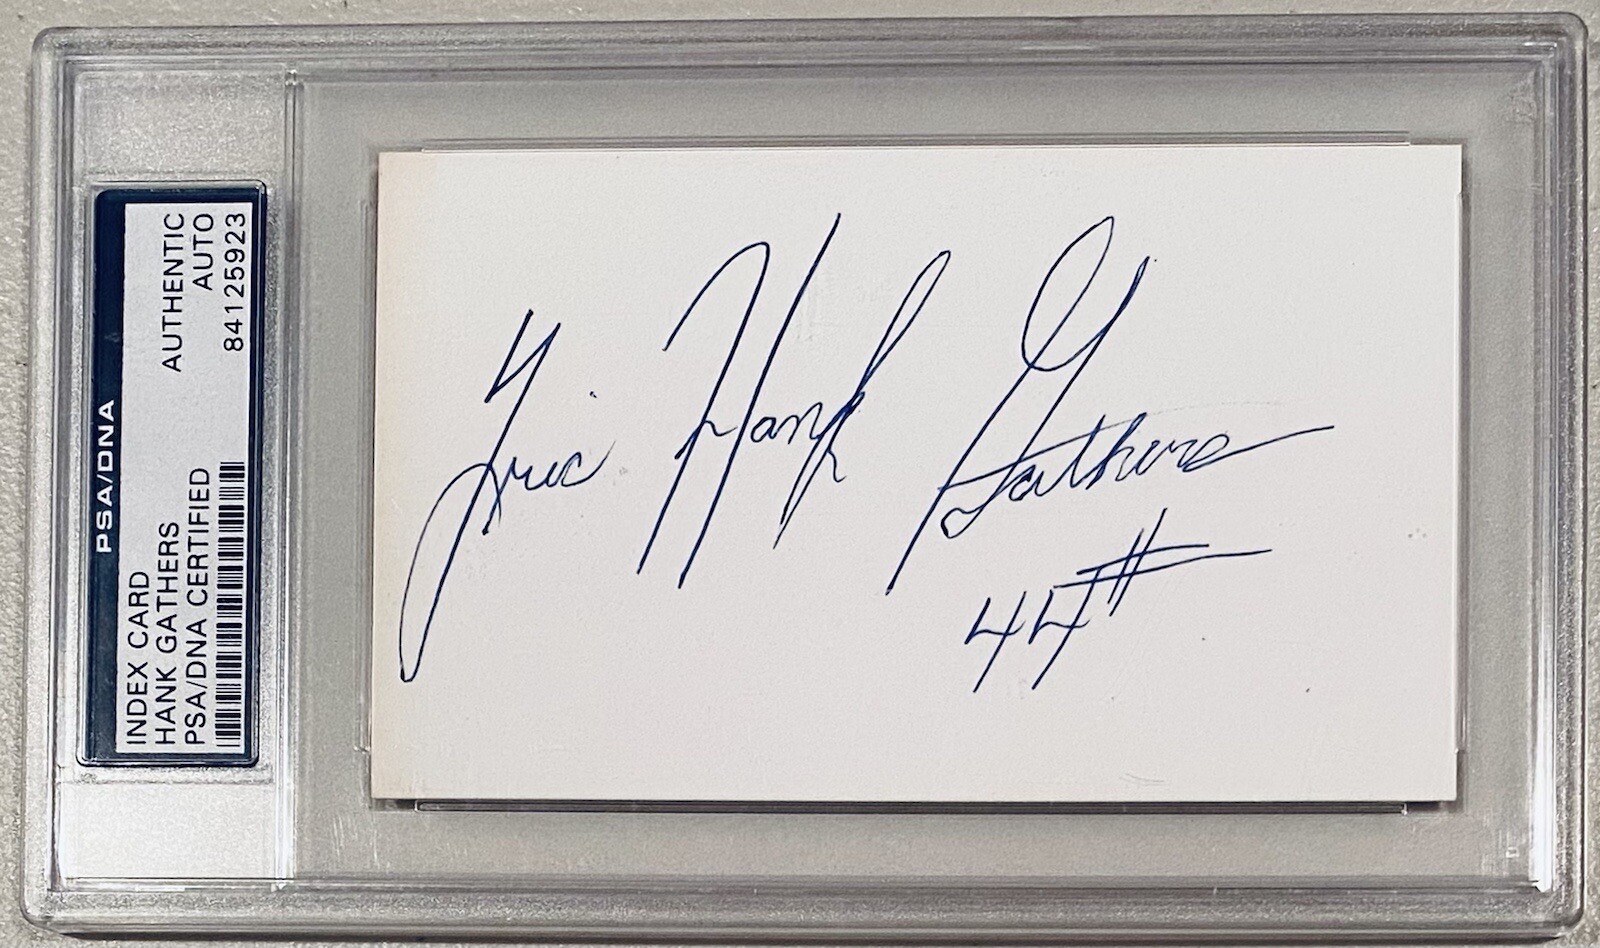 PSA/DNA
INDEX CARD AUTHENTIC
HANK GATHERS AUTO
PSA/DNA CERTIFIED 84125923
Eric Hank Gathers
44#